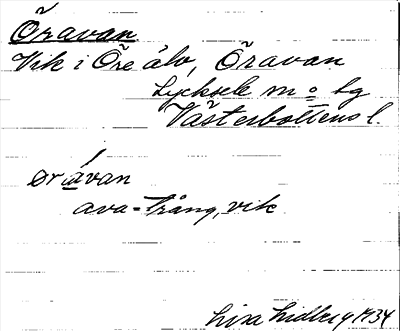 Öravan
Vik i Öre älv, Öravan
Lycksele m o lg
Västerbottens l.
ørávan
ava = trång, vik
Lisa Lidberg 1934